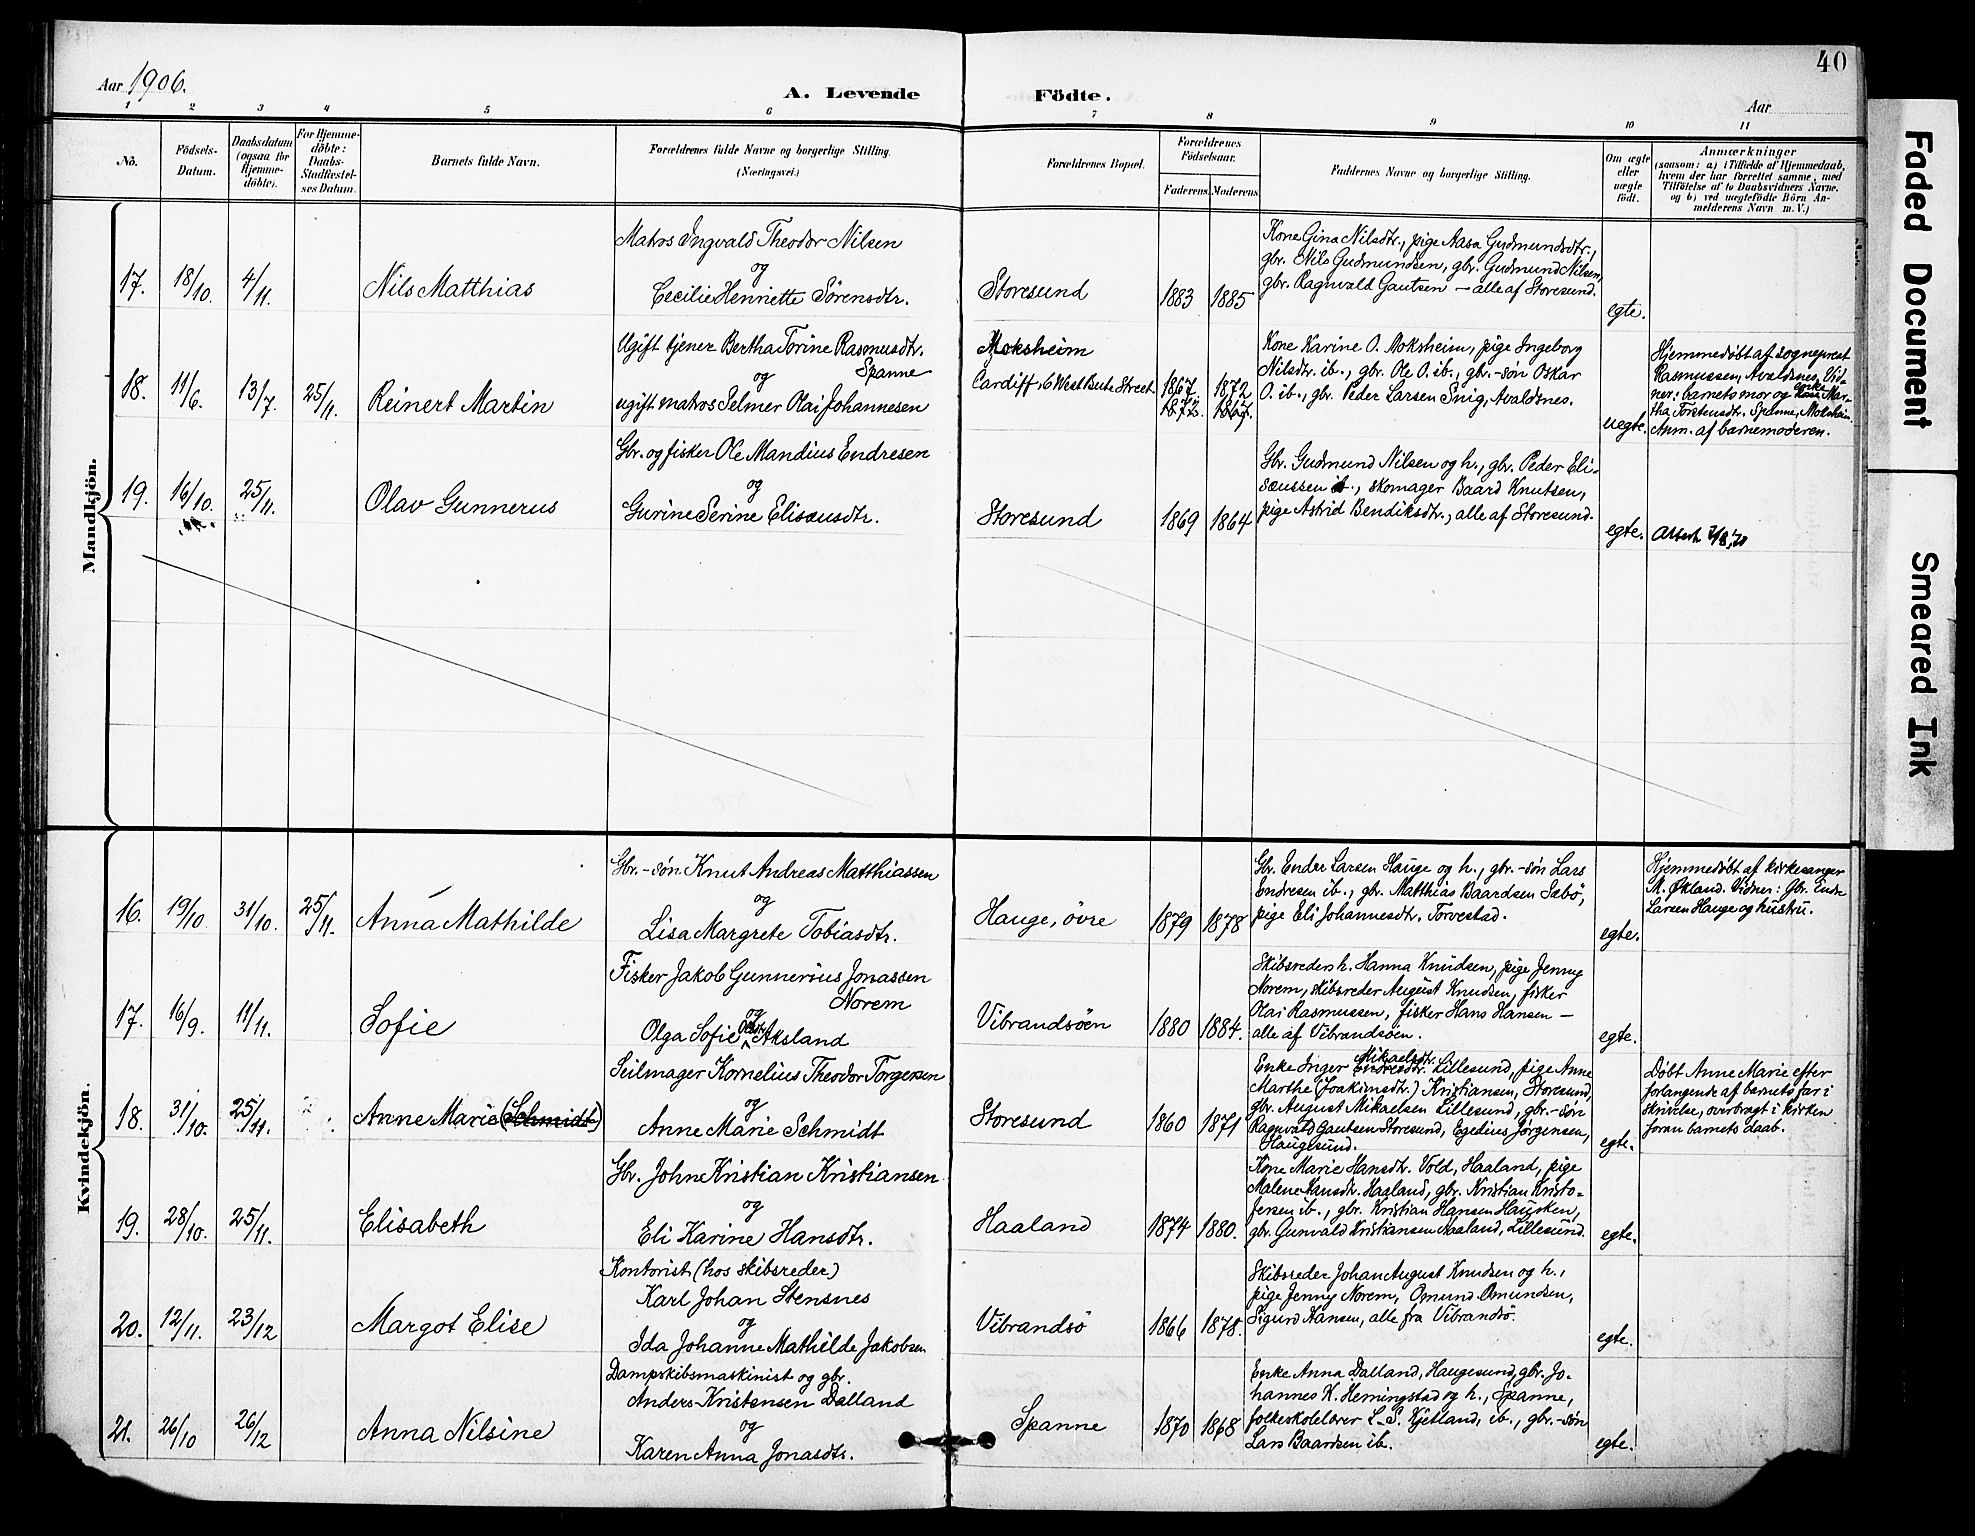 40
Aar 1906.
A. Levende Födte.
Aar
1 2 3 4 5 6 7 8 9 10 11
No.
Födsels-
Datum.
Daabsdatum
(ogsaa for
Hjemme-
döbte).
For Hjemme-
döbte:
Daabs-
Stadfæstel-
ses Datum.
Barnets fulde Navn.
Forældrenes fulde Navne og borgerlige Stilling.
(Næringsvei.)
Forældrenes Bopæl.
Forældrenes
Födselsaar.
Faderens. Moderens.
Faddernes Navne og borgerlige Stilling.
Om ægte
eller
uægte
födt.
Anmærkninger
(saasom: a) i Tilfælde af Hjemmedaab,
hvem der har forrettet samme, med
Tilföielse af to Daabsvidners Navne.
og b) ved uægtefödte Börn An-
melderens Navn m. V.)
Mandkjön.
17. 18/10. 4/11.
Nils Matthias
Matros Ingvald Theodor Nilsen
og
Cecilie Henriette Sörensdtr.
Storesund
1883 1885
Kone Gina Nilsdtr., pige Aasa Gudmundsdtr.,
gbr. Nils Gudmundsen, gbr. Gudmund Nilsen,
gbr. Ragnvald Gautsen – alle af Storesund.
egte.
18. 11/6. 13/7. 25/11.
Reinert Martin
Ugift tjener Bertha Torine Rasmusdtr.
Spanne
og
ugift matros Selmer Olai Johannesen
Moksheim
Cardiff, 6 West Bute Street.
1867. 1872
1872. 1867.
Kone Karine O. Moksheim, pige Ingeborg
Nilsdtr. ib., gbr. Ole O. ib., gbr.-søn Oskar
O. ib., gbr. Peder Larsen Snig, Avaldsnes.
uegte.
Hjemmedøbt af sogneprest
Rasmussen, Avaldsnes. Vid-
ner: barnets mor og enke Mar-
tha Torstensdtr. Spanne, Moksheim.
Anm. af barnemoderen.
19. 16/10. 25/11.
Olav Gunnerus
Gbr. og fisker Ole Mandius Endresen
og
Gurine Serine Elisæusdtr.
Storesund
1869 1864
Gbr. Gudmund Nilsen og h., gbr. Peder Eli-
sæussen ib., skomager Baard Knutsen,
pige Astrid Bendiksdtr., alle af Storesund.
egte.
Kvindekjön.
16. 19/10. 31/10. 25/11.
Anna Mathilde
Gbr.-søn Knut Andreas Matthiassen
og
Lisa Margrete Tobiasdtr.
Hauge, øvre
1879 1878
Gbr. Ender Larsen Hauge og h., gbr.-søn Lars
Endresen ib., gbr. Matthias Baardsen Sabö,
pige Eli Johannesdtr. Torvestad.
egte.
Hjemmedøbt af kirkesanger
M. Økland. Vidner: Gbr. Ende
Larsen Hauge og hustru.
17. 16/9. 11/11.
Sofie
Fisker Jakob Gunnerius Jonassen
Norem
og
Olga Sofie Olsdtr. Aksland
Vibrandsöen
1880 1884.
Skibsreders h. Hanna Knudsen, pige Jenny
Norem, skibsreder August Knudsen, fisker
Olai Rasmussen, fisker Hans Hansen –
alle af Vibrandsöen.
egte.
18. 31/10. 25/11.
Anne Marie (Schmidt)
Seilmager Kornelius Theodor Torgersen
og
Anne Marie Schmidt
Storesund
1860 1871
Mikaelsdtr.
Enke Inger Endresdtr. Lillesund, pige Anne
Marthe (Joakimsdtr.) Kristiansen, Storesund,
gbr. August Mikaelsen Lillesund, gbr.-søn
Ragnvald Gautsen Storesund, Egedius Jørgensen,
Haugesund.
egte.
Døbt Anne Marie efter
forlangende af barnets far i
skrivelse, overbragt i kirken
foran barnets daab.
19. 28/10. 25/11.
Elisabeth
Gbr. Johne Kristian Kristiansen
og
Eli Karine Hansdtr.
Haaland
1874 1880.
Kone Marie Hansdtr. Vold, Haaland, pige
Malene Hansdtr. Haaland, gbr. Kristian Kristo-
fersen ib., gbr. Kristian Hansen Hausken,
gbr. Gunvald Kristiansen Haaland, Lillesund.
egte.
20. 12/11. 23/12
Margot Elise
Kontorist (hos skibsreder)
Karl Johan Stensnes
og
Ida Johanne Mathilde Jakobsen
Vibrandsö
1866 1878.
Skibsreder Johan August Knudsen og h.,
pige Jenny Norem, Omund Omundsen,
Sigurd Hansen, alle fra Vibrandsö.
egte.
21. 26/10 26/12
Anna Nilsine
Dampskibsmaskinist og gbr.
Anders Kristensen Dalland
og
Karen Anna Jonasdtr.
Spanne
1870 1868
Enke Anna Dalland, Haugesund, gbr. Jo-
hannes K. Hemingstad og h., Spanne,
folkeskolelærer L. S. Kjetland, ib., gbr.-søn
Lars Baardsen ib.
egte.
Faded Document
Smeared Ink